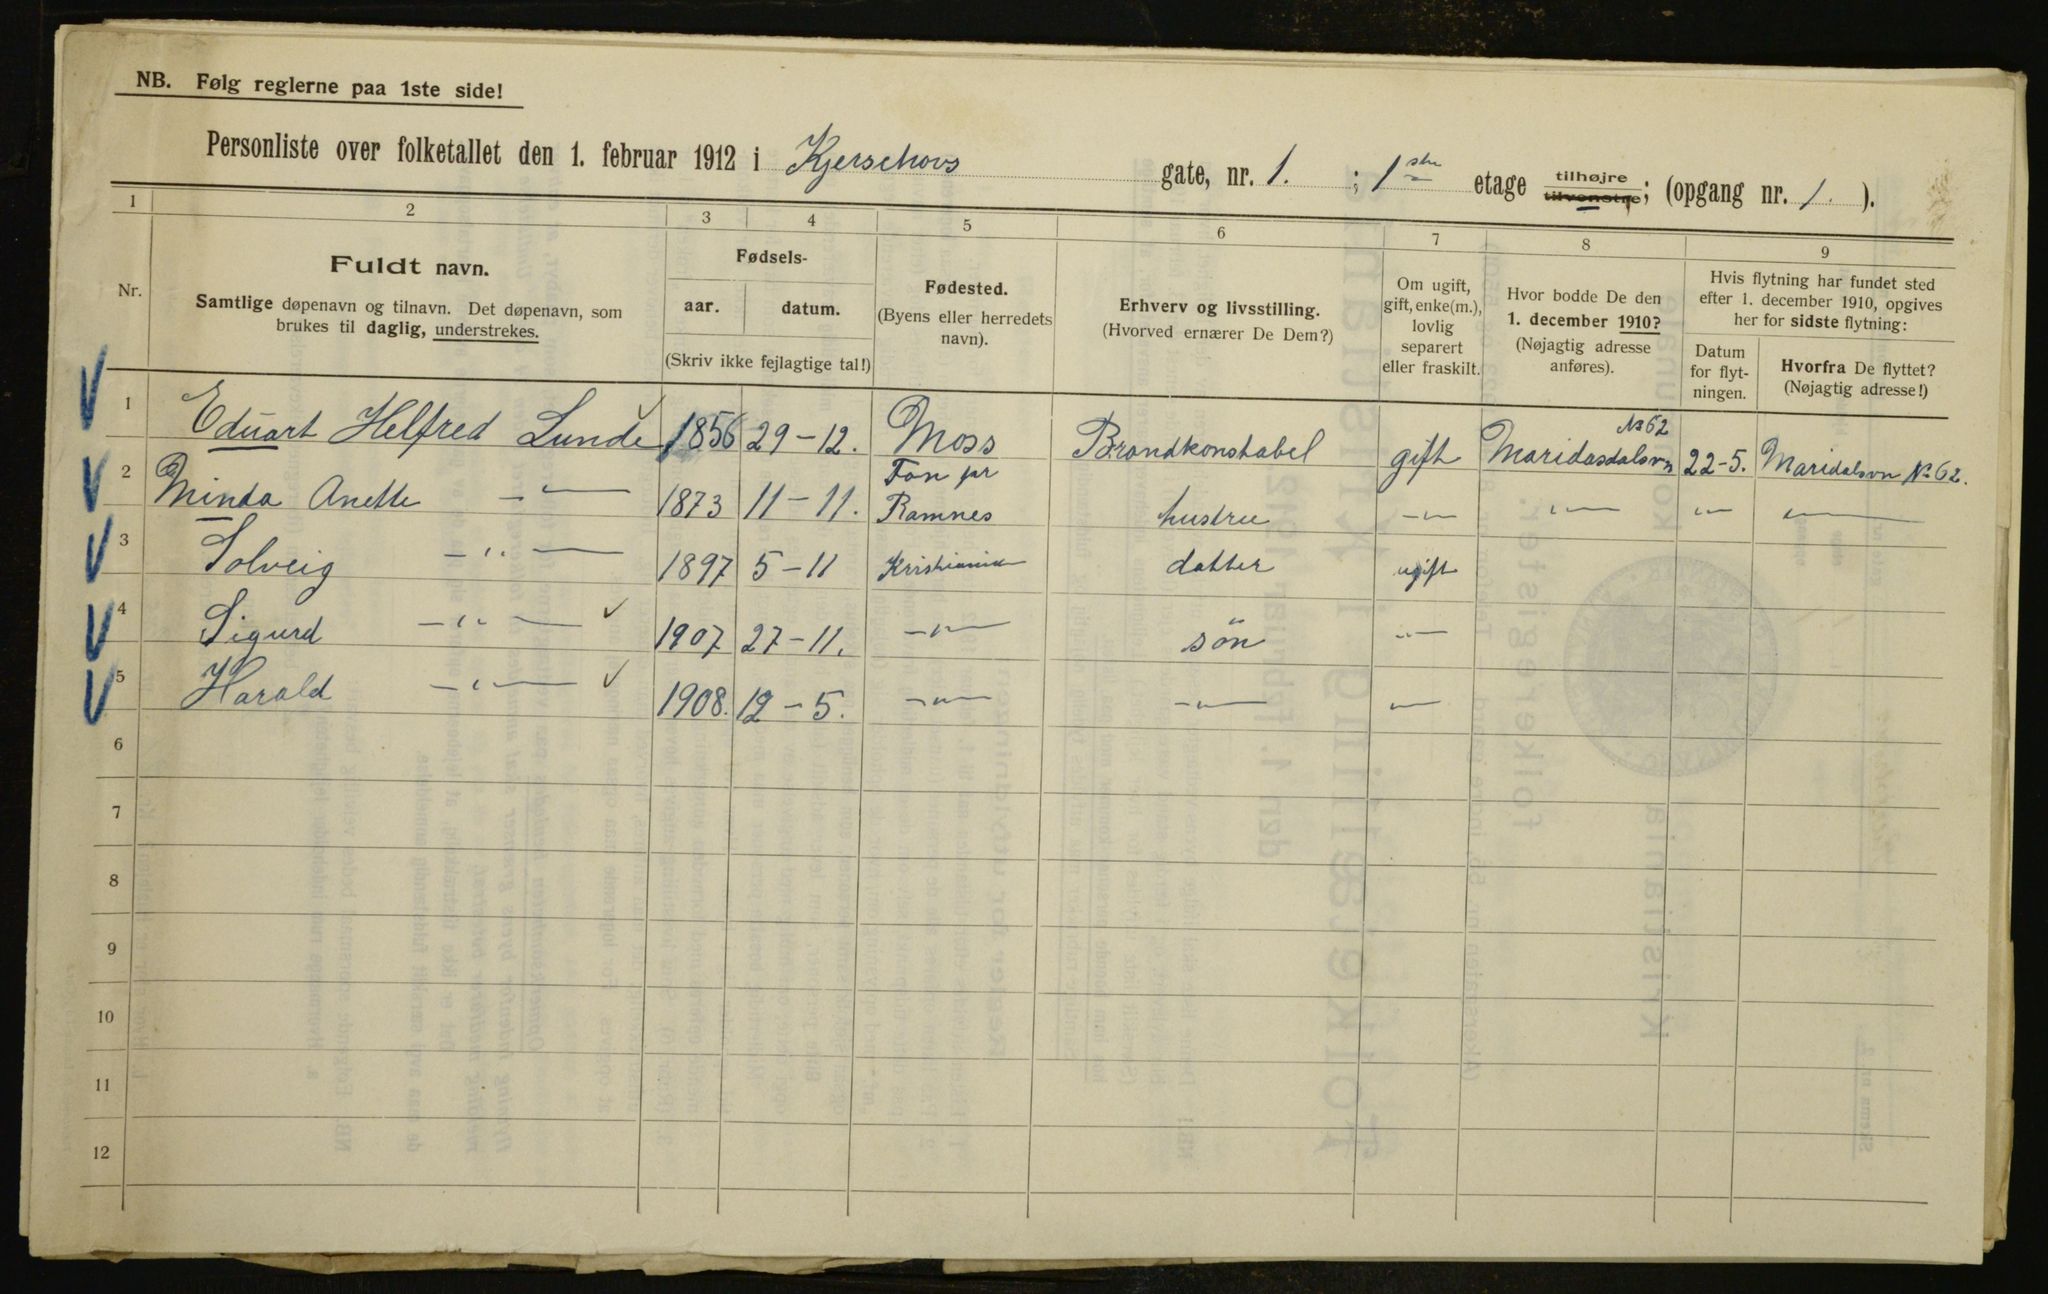 NB. Følg reglerne paa 1ste side!
Personliste over folketallet den 1. februar 1912 i Kjerschovs gate, nr. 1. ; 1ste etage tilhøjre tilvenstre; (opgang nr. 1. ).
1 2 3 4 5 6 7 8 9
Nr.
Fuldt navn.
Samtlige døpenavn og tilnavn. Det døpenavn, som
brukes til daglig, understrekes.
Fødsels-
aar. datum.
(Skriv ikke fejlagtige tal!)
Fødested.
(Byens eller herredets
navn).
Erhverv og livsstilling.
(Hvorved ernærer De Dem?)
Om ugift,
gift, enke(m.),
lovlig
separert
eller fraskilt.
Hvor bodde De den
1. december 1910?
(Nøjagtig adresse
anføres).
Hvis flytning har fundet sted
efter 1. december 1910, opgives
her for sidste flytning:
Datum
for flyt-
ningen.
Hvorfra De flyttet?
(Nøjagtig adresse!)
1 Eduart Helfred Lunde 1856 29-12. Moss Brandkonstabel gift Maridasdalsvn No 62 22-5. Maridalsvn No 62.
2 Minda Anette -"- 1873 11-11. Fon pr Ramnes hustru -"- -"- -"- -"-
3 Solveig -"- 1897 5-11 Kristiania datter ugift
4 Sigurd -"- 1907 27-11. -"- søn -"-
5 Harald -"- 1908. 12-5. -"- -"- -"-
6
7
8
9
10
11
12